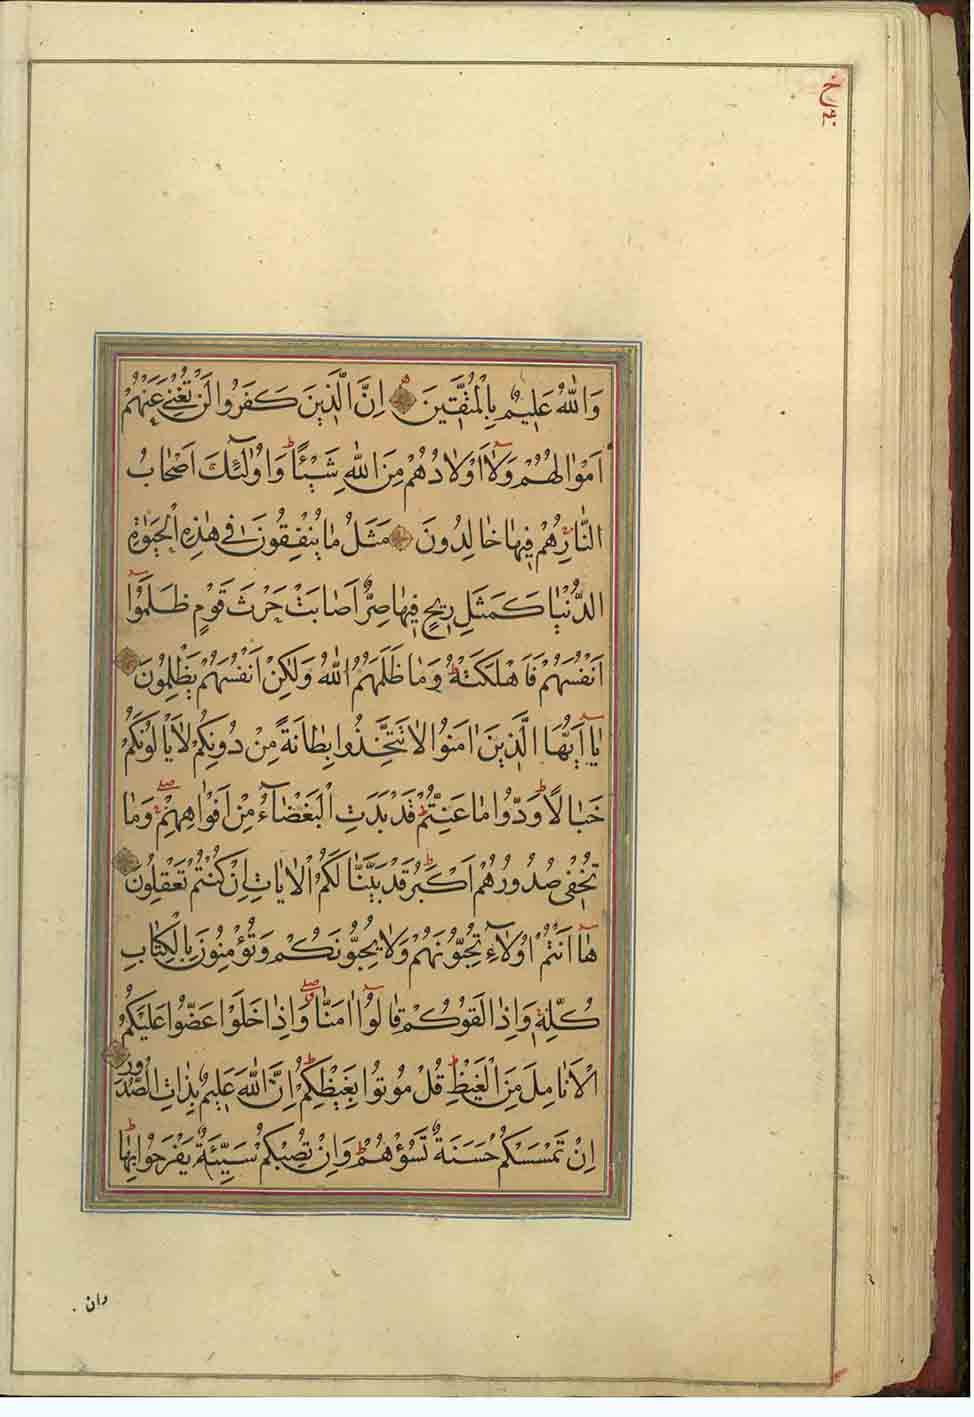 وَاللّٰهُ عَلِيمٌ بِالْمُتَّقِينَ اِنَّ الَّذِينَ كَفَرُوا لَنْ تُغْنِيَ عَنْهُمْ
اَمْوٰالُهُمْ وَلٰا اَوْلٰادُهُمْ مِنَ اللّٰهِ شَيْئًا وَاُولٰٓئِكَ اَصْحٰابُ
النّٰارِ هُمْ فِيهٰا خٰالِدُونَ مَثَلُ مٰا يُنْفِقُونَ فِي هٰذِهِ الْحَيٰوةِ
الدُّنْيٰا كَمَثَلِ رِيحٍ فِيهٰا صِرٌّ اَصٰابَتْ حَرْثَ قَوْمٍ ظَلَمُوٓا
اَنْفُسَهُمْ فَاَهْلَكَتْهُ وَمٰا ظَلَمَهُمُ اللّٰهُ وَلٰكِنْ اَنْفُسَهُمْ يَظْلِمُونَ
يٰٓا اَيُّهَا الَّذِينَ اٰمَنُوا لٰا تَتَّخِذُوا بِطٰانَةً مِنْ دُونِكُمْ لٰا يَاْلُونَكُمْ
خَبٰالًا وَدُّوا مٰا عَنِتُّمْ قَدْ بَدَتِ الْبَغْضٰٓاءُ مِنْ اَفْوٰاهِهِمْ وَمٰا
تُخْفِي صُدُورُهُمْ اَكْبَرُ قَدْ بَيَّنّٰا لَكُمُ الْاٰيٰاتِ اِنْ كُنْتُمْ تَعْقِلُونَ
هٰٓا اَنْتُمْ اُولٰٓاءِ تُحِبُّونَهُمْ وَلٰا يُحِبُّونَكُمْ وَتُؤْمِنُونَ بِالْكِتٰابِ
كُلِّهِ وَاِذٰا لَقُوكُمْ قٰالُوٓا اٰمَنّٰا وَاِذٰا خَلَوْا عَضُّوا عَلَيْكُمُ
الْاَنٰامِلَ مِنَ الْغَيْظِ قُلْ مُوتُوا بِغَيْظِكُمْ اِنَّ اللّٰهَ عَلِيمٌ بِذٰاتِ الصُّدُورِ
اِنْ تَمْسَسْكُمْ حَسَنَةٌ تَسُؤْهُمْ وَاِنْ تُصِبْكُمْ سَيِّئَةٌ يَفْرَحُوا بِهٰا
وان